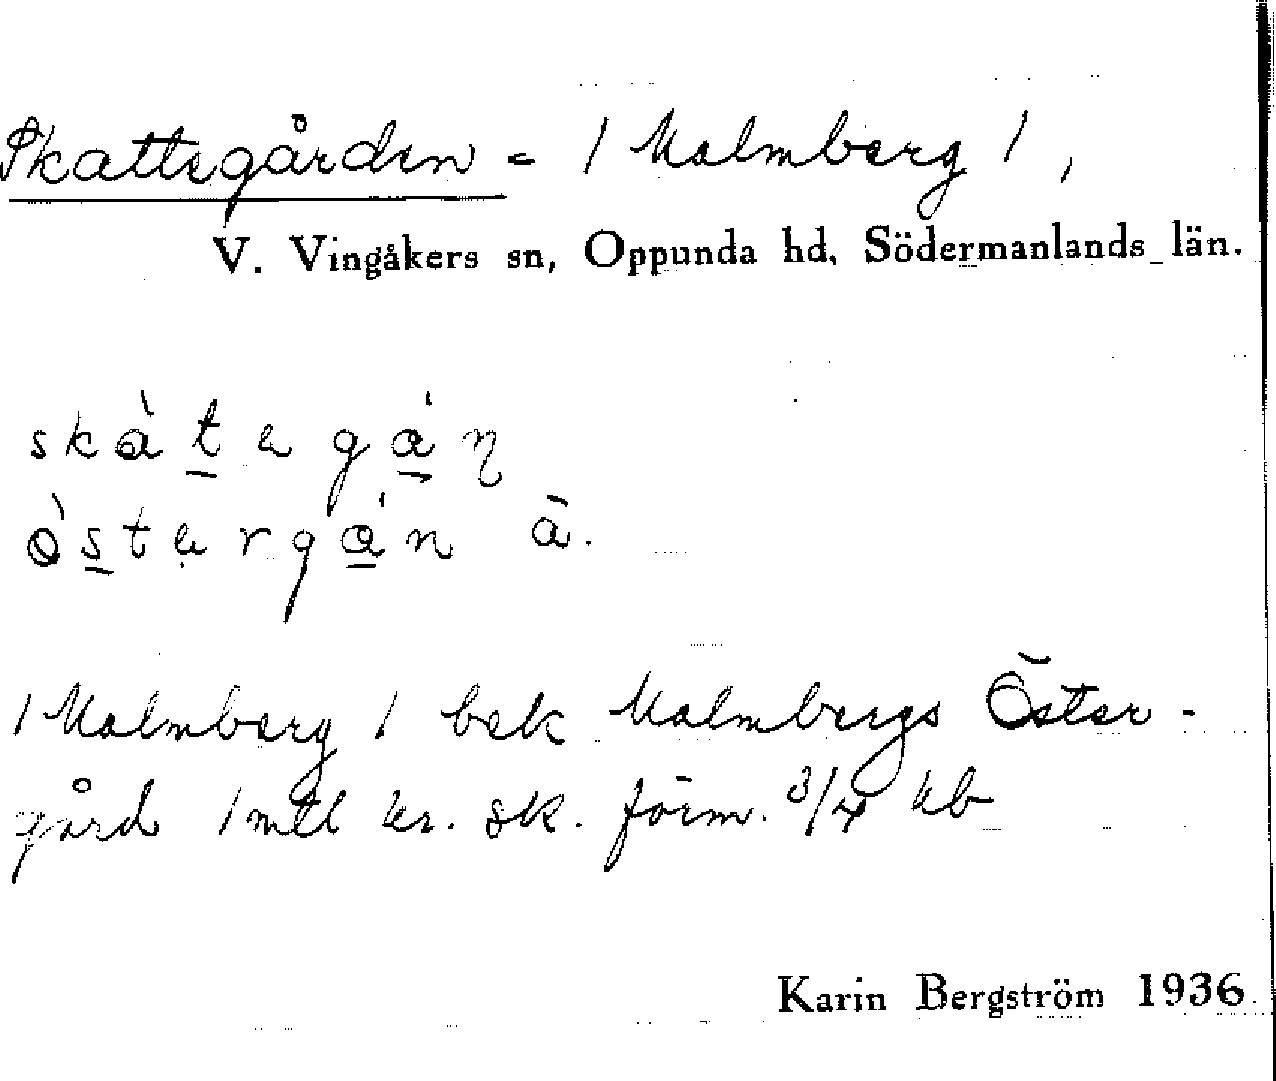 Skattegården = / Malmberg /,
V. Vingåkers sn, Oppunda hd, Södermanlands län.
skàtegán
òstergán ā.
/ Malmberg / bek Malmbergs Öster-
gård 1 mtl kr. sk. förm. 3/4 kb
Karin Bergström 1936